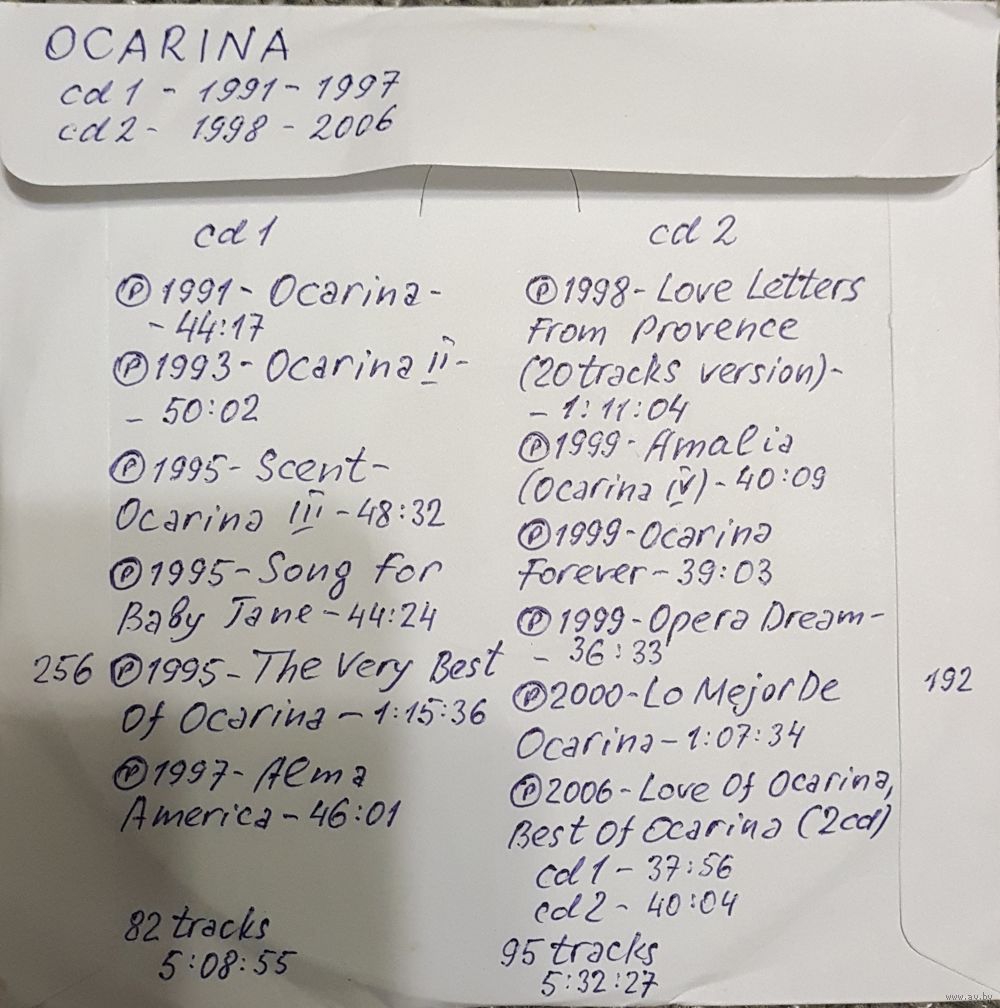 OCARINA
cd 1 - 1991 - 1997
cd 2 - 1998 - 2006
cd 1
Ⓟ 1991 - Ocarina -
- 44:17
Ⓟ 1993 - Ocarina II -
- 50:02
Ⓟ 1995 - Scent -
Ocarina III - 48:32
Ⓟ 1995 - Song For
Baby Jane - 44:24
256 Ⓟ 1995 - The Very Best
Of Ocarina - 1:15:36
Ⓟ 1997 - Alma
America - 46:01
82 tracks
5:08:55
cd 2
Ⓟ 1998 - Love Letters
From Provence
(20 tracks version) -
- 1:11:04
Ⓟ 1999 - Amalia
(Ocarina IV) - 40:09
Ⓟ 1999 - Ocarina
Forever - 39:03
Ⓟ 1999 - Opera Dream -
- 36:33
Ⓟ 2000 - Lo Mejor De
Ocarina - 1:07:34
192
Ⓟ 2006 - Love Of Ocarina,
Best Of Ocarina (2cd)
cd 1 - 37:56
cd 2 - 40:04
95 tracks
5:32:27
www.av.by